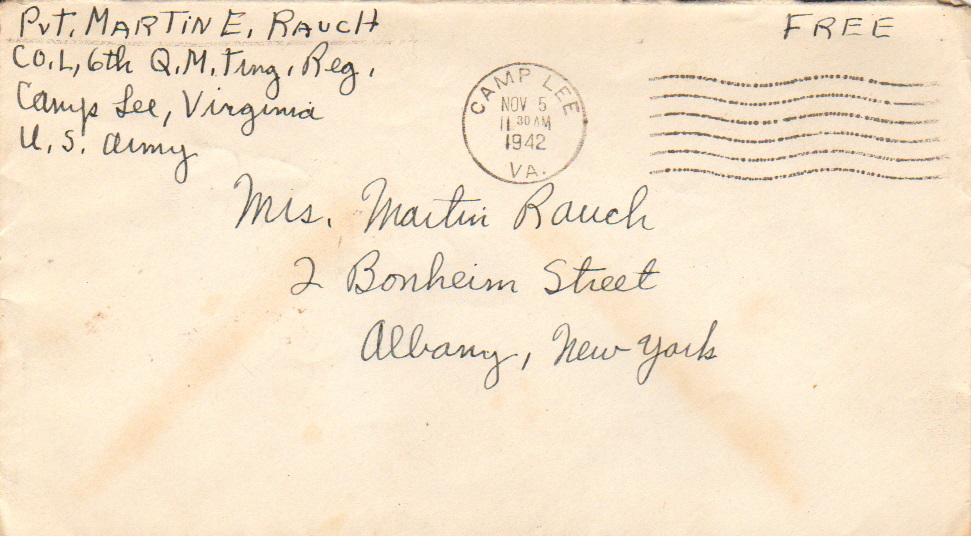 Pvt. MARTIN E. RAUCH
CO. L, 6th Q.M. Tng. Reg.
Camp Lee, Virginia
U.S. Army
FREE
CAMP LEE
NOV 5
11 30 AM
1942
VA.
Mrs. Martin Rauch
2 Bonheim Street
Albany, New York